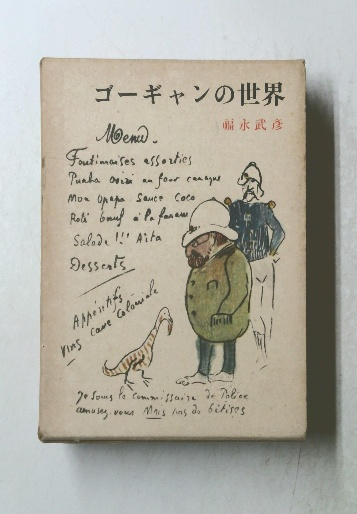 ゴーギャンの世界
福永武彦
Menu.
assorties
au four canaque
Mon opapa Sauce Coco
Roti bœuf à la
Salade !!! Aita
Desserts
Appéritifs
Vins cave Coloniale
Je Sous le commissaire de Police
amusez vous Mais pas de bêtises